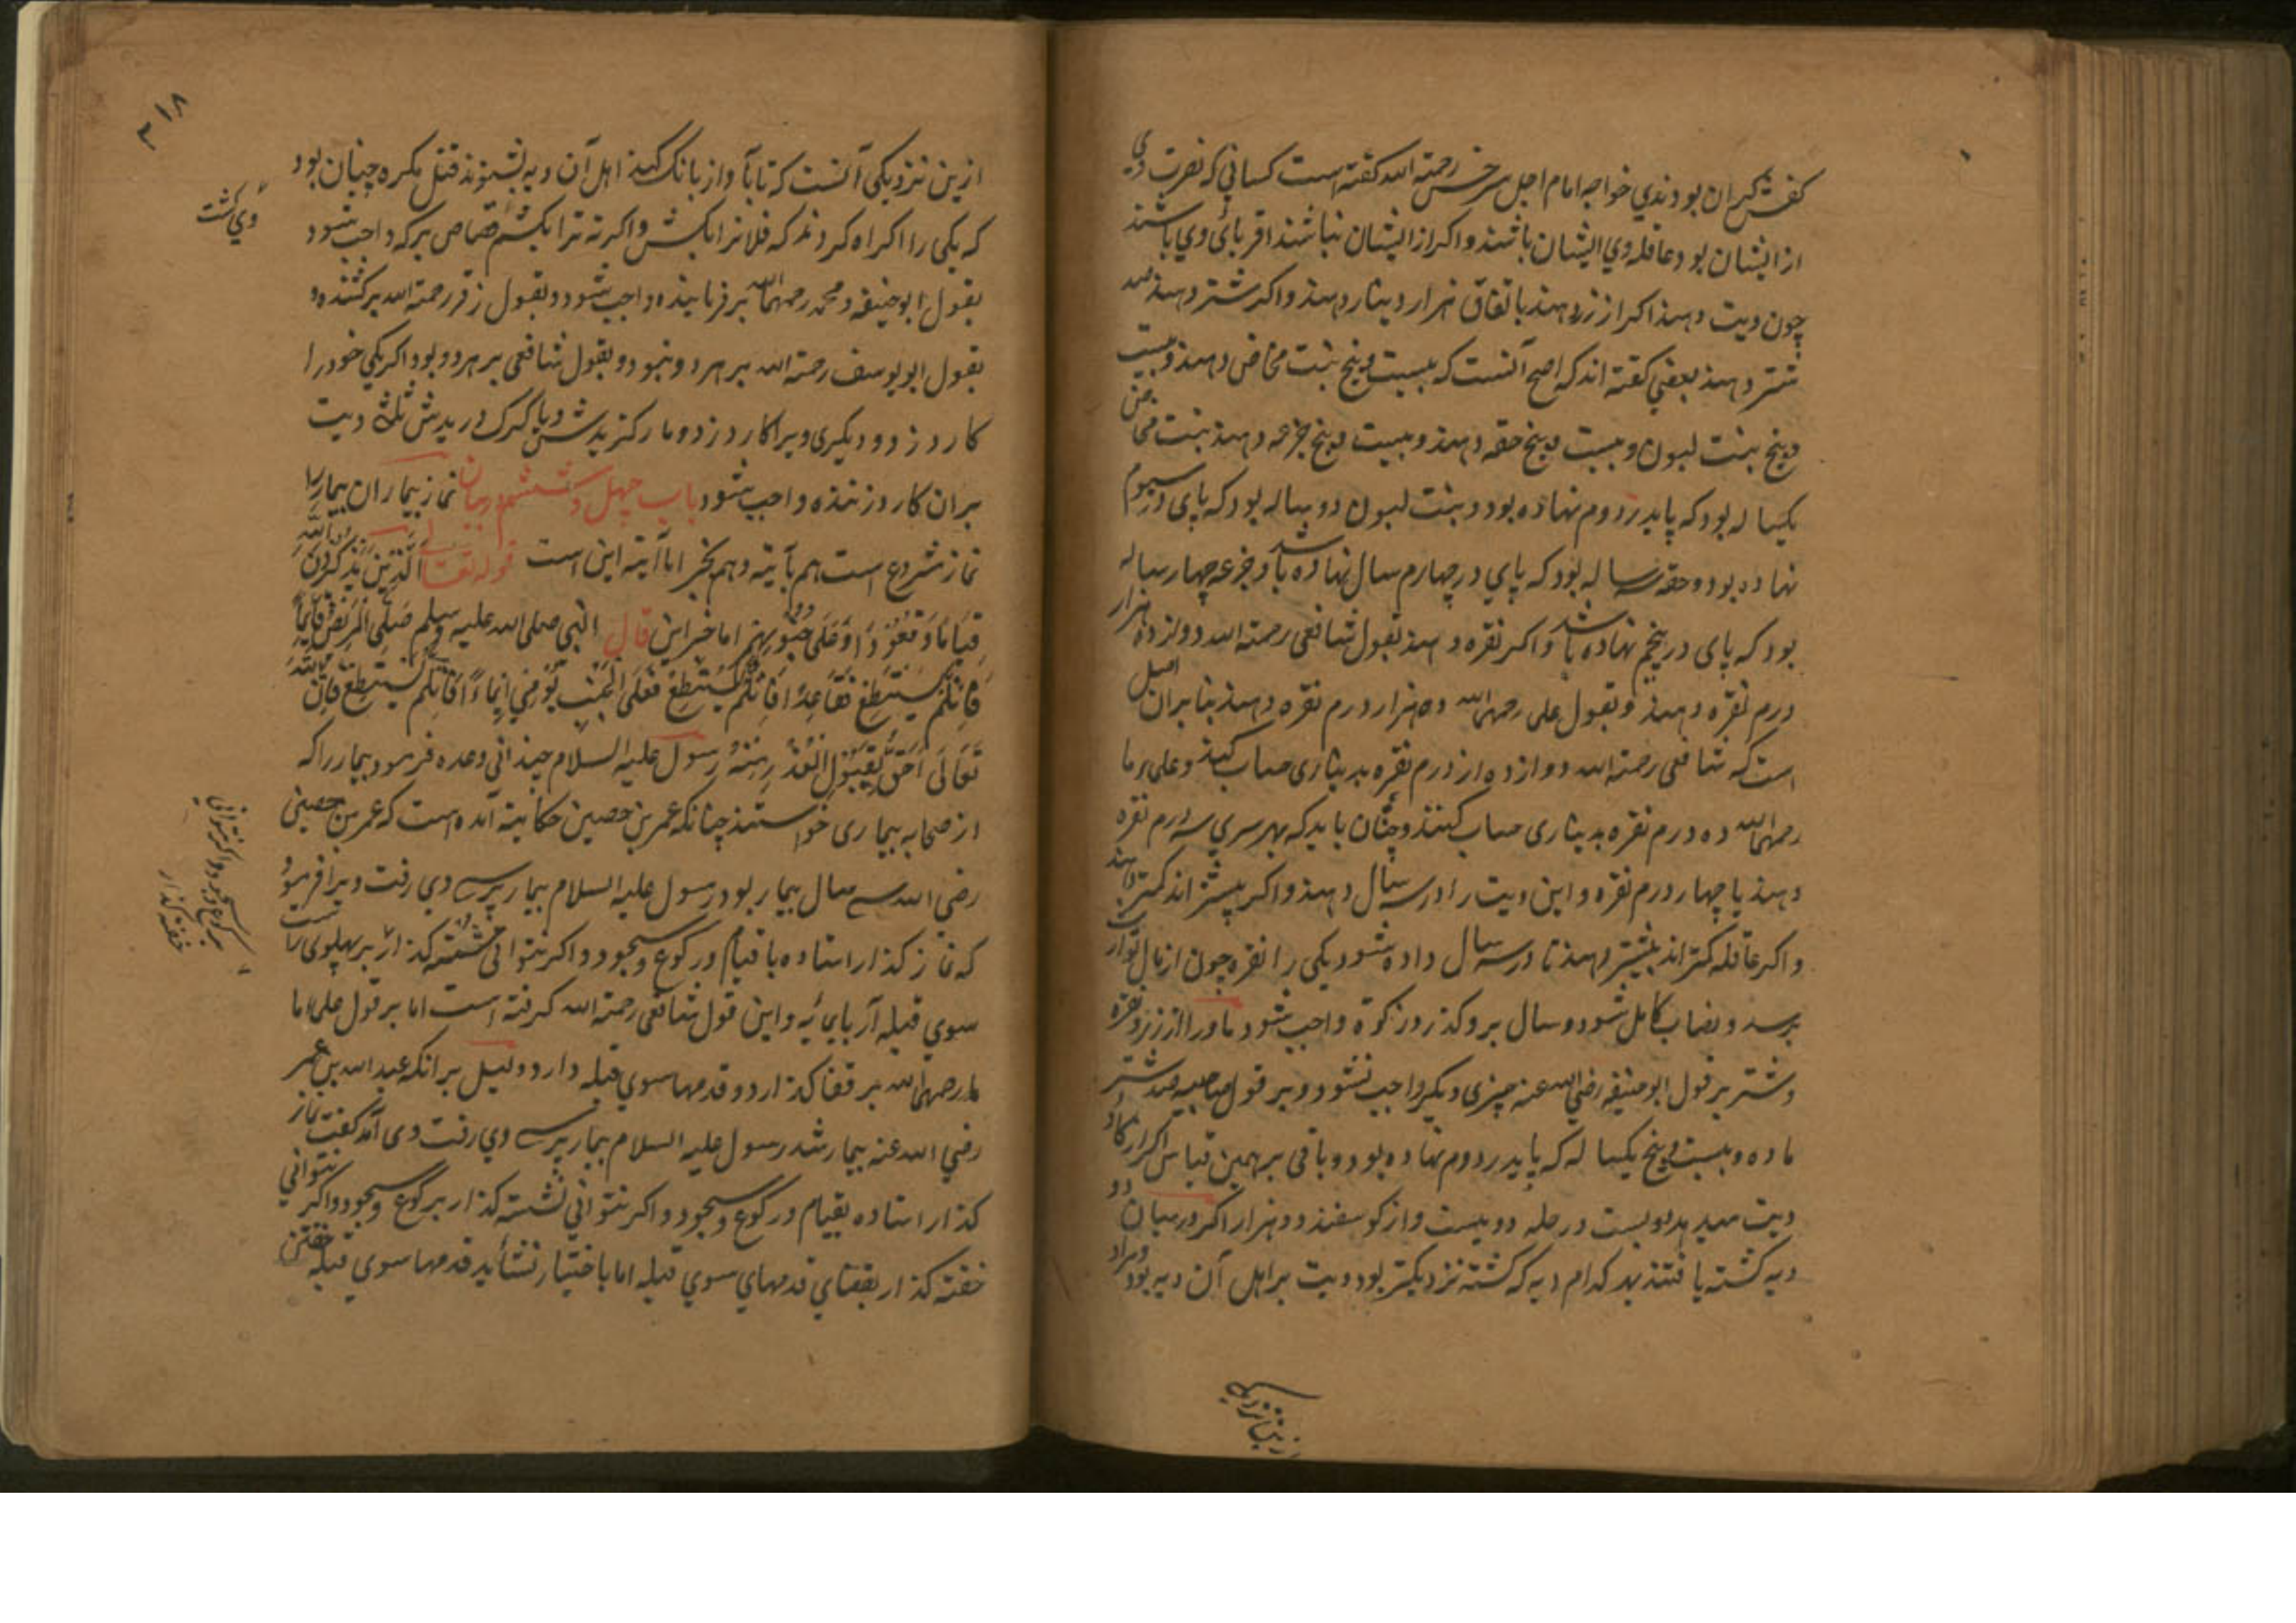 کفش گران بودندی خواجه امام اجل سرخسی رحمة الله گفته است کسانی که نصرت وی
از ایشان بود عاقله وی ایشان باشند و اکر از ایشان نباشند اقربائ وی باشند
چون دیت دهند اکر از زر دهند باتفاق هزار دینار دهند و اکر شتر دهند صد
شتر دهند بعضی کفته اند که اصح آنست که بیست و پنج بنت مخاض دهند و بیست
و پنج بنت لبون و بیست و پنج حقه دهند و بیست و پنج جزعه دهند بنت مخاض
یکساله بود که پای در دوم نهاده بود و بنت لبون دو ساله بود که پای در سیوم
نهاده بود و حقه سه ساله بود که پای در چهارم سال نهاده باشد و جزعه چهار ساله
بود که پای در پنجم نهاده باشد و اکر نقره دهند بقول شافعی رحمة الله دوازده هزار
درم نقره دهند و بقول علی رحمهما الله ده هزار درم نقره دهند بنا بران اصل
است که شافعی رحمة الله دوازده درم نقره بدیناری حساب کند و علماء ما
رحمهم الله ده درم نقره بدیناری حساب کنند و چنان باید که بهر سری سه درم نقره
دهند یا چهار درم نقره و این دیت را در سه سال دهند و اکر بیشتر اند کمتر دهند
و اکر عاقله کمتر اند بیشتر دهند تا در سه سال داده شود یکی را نقره چون از مال تو آرن
برسد و نصاب کامل شود و سال برو کذرد زکوة واجب شود ماورا از زر و نقره
و شتر بر قول ابوحنیفه رضی الله عنه چیزی دیکر واجب نشود و بر قول صاحبیه صد شتر
ماده و بیست و پنج یکساله که پای در دوم نهاده بود و باقی برهمین قیاس اکر از کاو
دیت میدهد دویست در حله دویست و از کوسفند دو هزار اکر در میان دو
دیه کشته یافتند بهر کدام دیه که کشته نزدیکتر بود دیت بر اهل آن دیه بود و مراد
ازین نزدیکی
۳۱۸
ازین نزدیکی آنست که تا بآواز بانک کنند اهل آن دیه بشنوند قتل مکره چنان بود
که یکی را اکراه کردند که فلانرا بکش و اکر نه ترا بکشم قصاص برکه واجب شود
وی کشت
بقول ابوحنیفه و محمد رحمهما الله بر فرماینده واجب شود و بقول زفر رحمة الله بر کشنده و
بقول ابو یوسف رحمة الله بر هر دو نبود و بقول شافعی بر هر دو بود اکر یکی خود را
کارد زد و دیکری ویرا کارد زد و مار کزیدش و یا کرک دریدش ثلث دیت
بران کارد زننده واجب شود باب چهل و ششم در بیان نماز بیماران بیمار را
نماز مشروع است هم بآیته و هم بخبر اما آیته این است قوله تعالی الذین یذکرون الله
قیاما و قعودا و علی جنوبهم اما خبر این قال النبی صلی الله علیه وسلم صلی المریض قایما
فان لم یستطع فقاعدا فان لم یستطع فعلی الجنب یومی ایماء فان لم یستطع فان الله
تعالی احق بقبول العذر منه رسول علیه السلام چندانی وعده فرمود بیمار را که
از صحابه بیماری خواستند چنانکه عمر بن حصین حکایته آمده است که عمر بن حصین
رضی الله سه سال بیمار بود رسول علیه السلام بیمار پرسی وی رفت ویرا فرمود
که نماز کذار استاده با قیام و رکوع و سجود و اکر نتوانی نشسته کذار بر پهلوی راست
برکوع و سجود و اکر نتوانی
خفته کذار
سوی قبله آر بایمائیه و این قول شافعی رحمة الله کرفته است اما بر قول علماء ما
ما رحمهم الله بر قفا کذارد و قدمها سوی قبله دارد و دلیل برانکه عبد الله بن عمر
رضی الله عنه بیمار شد رسول علیه السلام بیمار پرسی وی رفت وی آمد کفت نماز
کذار استاده بقیام و رکوع و سجود و اکر نتوانی نشسته کذار برکوع و سجود و اکر نتوانی
خفته کذار بقفای قدمهای سوی قبله اما باختیار نشاید قدمها سوی قبله خفتن